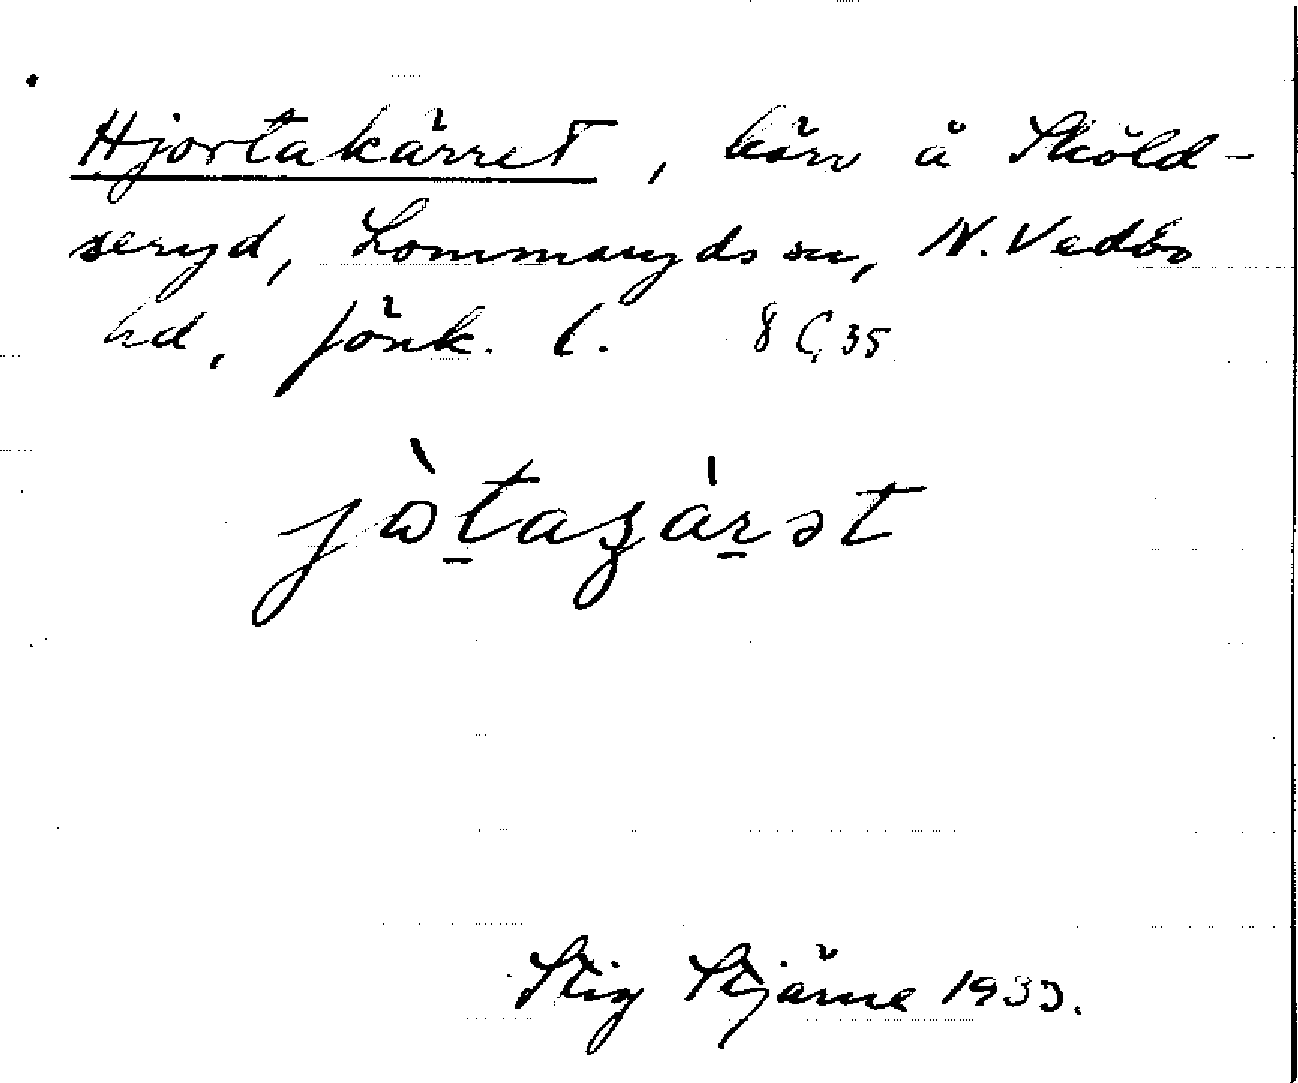 Hjortakärret, kärr å Sköld-
seryd, Lommaryds sn, N. Vedbo
hd, Jönk. l. 8 C 35
jòtaʒárət
Stig Stjärne 1933.